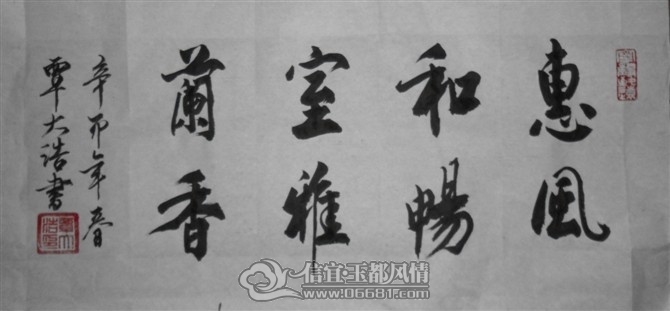 惠風
和暢
室雅
蘭香
辛卯年春
覃大浩書
信宜·玉都风情
www.06681.com